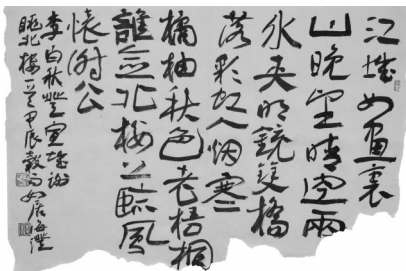 江城如畫裏
山晚望晴空兩
水夾明鏡雙橋
落彩虹人烟寒
橘柚秋色老梧桐
誰念北樓上臨風
懷謝公
李白秋登宣城謝
朓北樓 甲辰